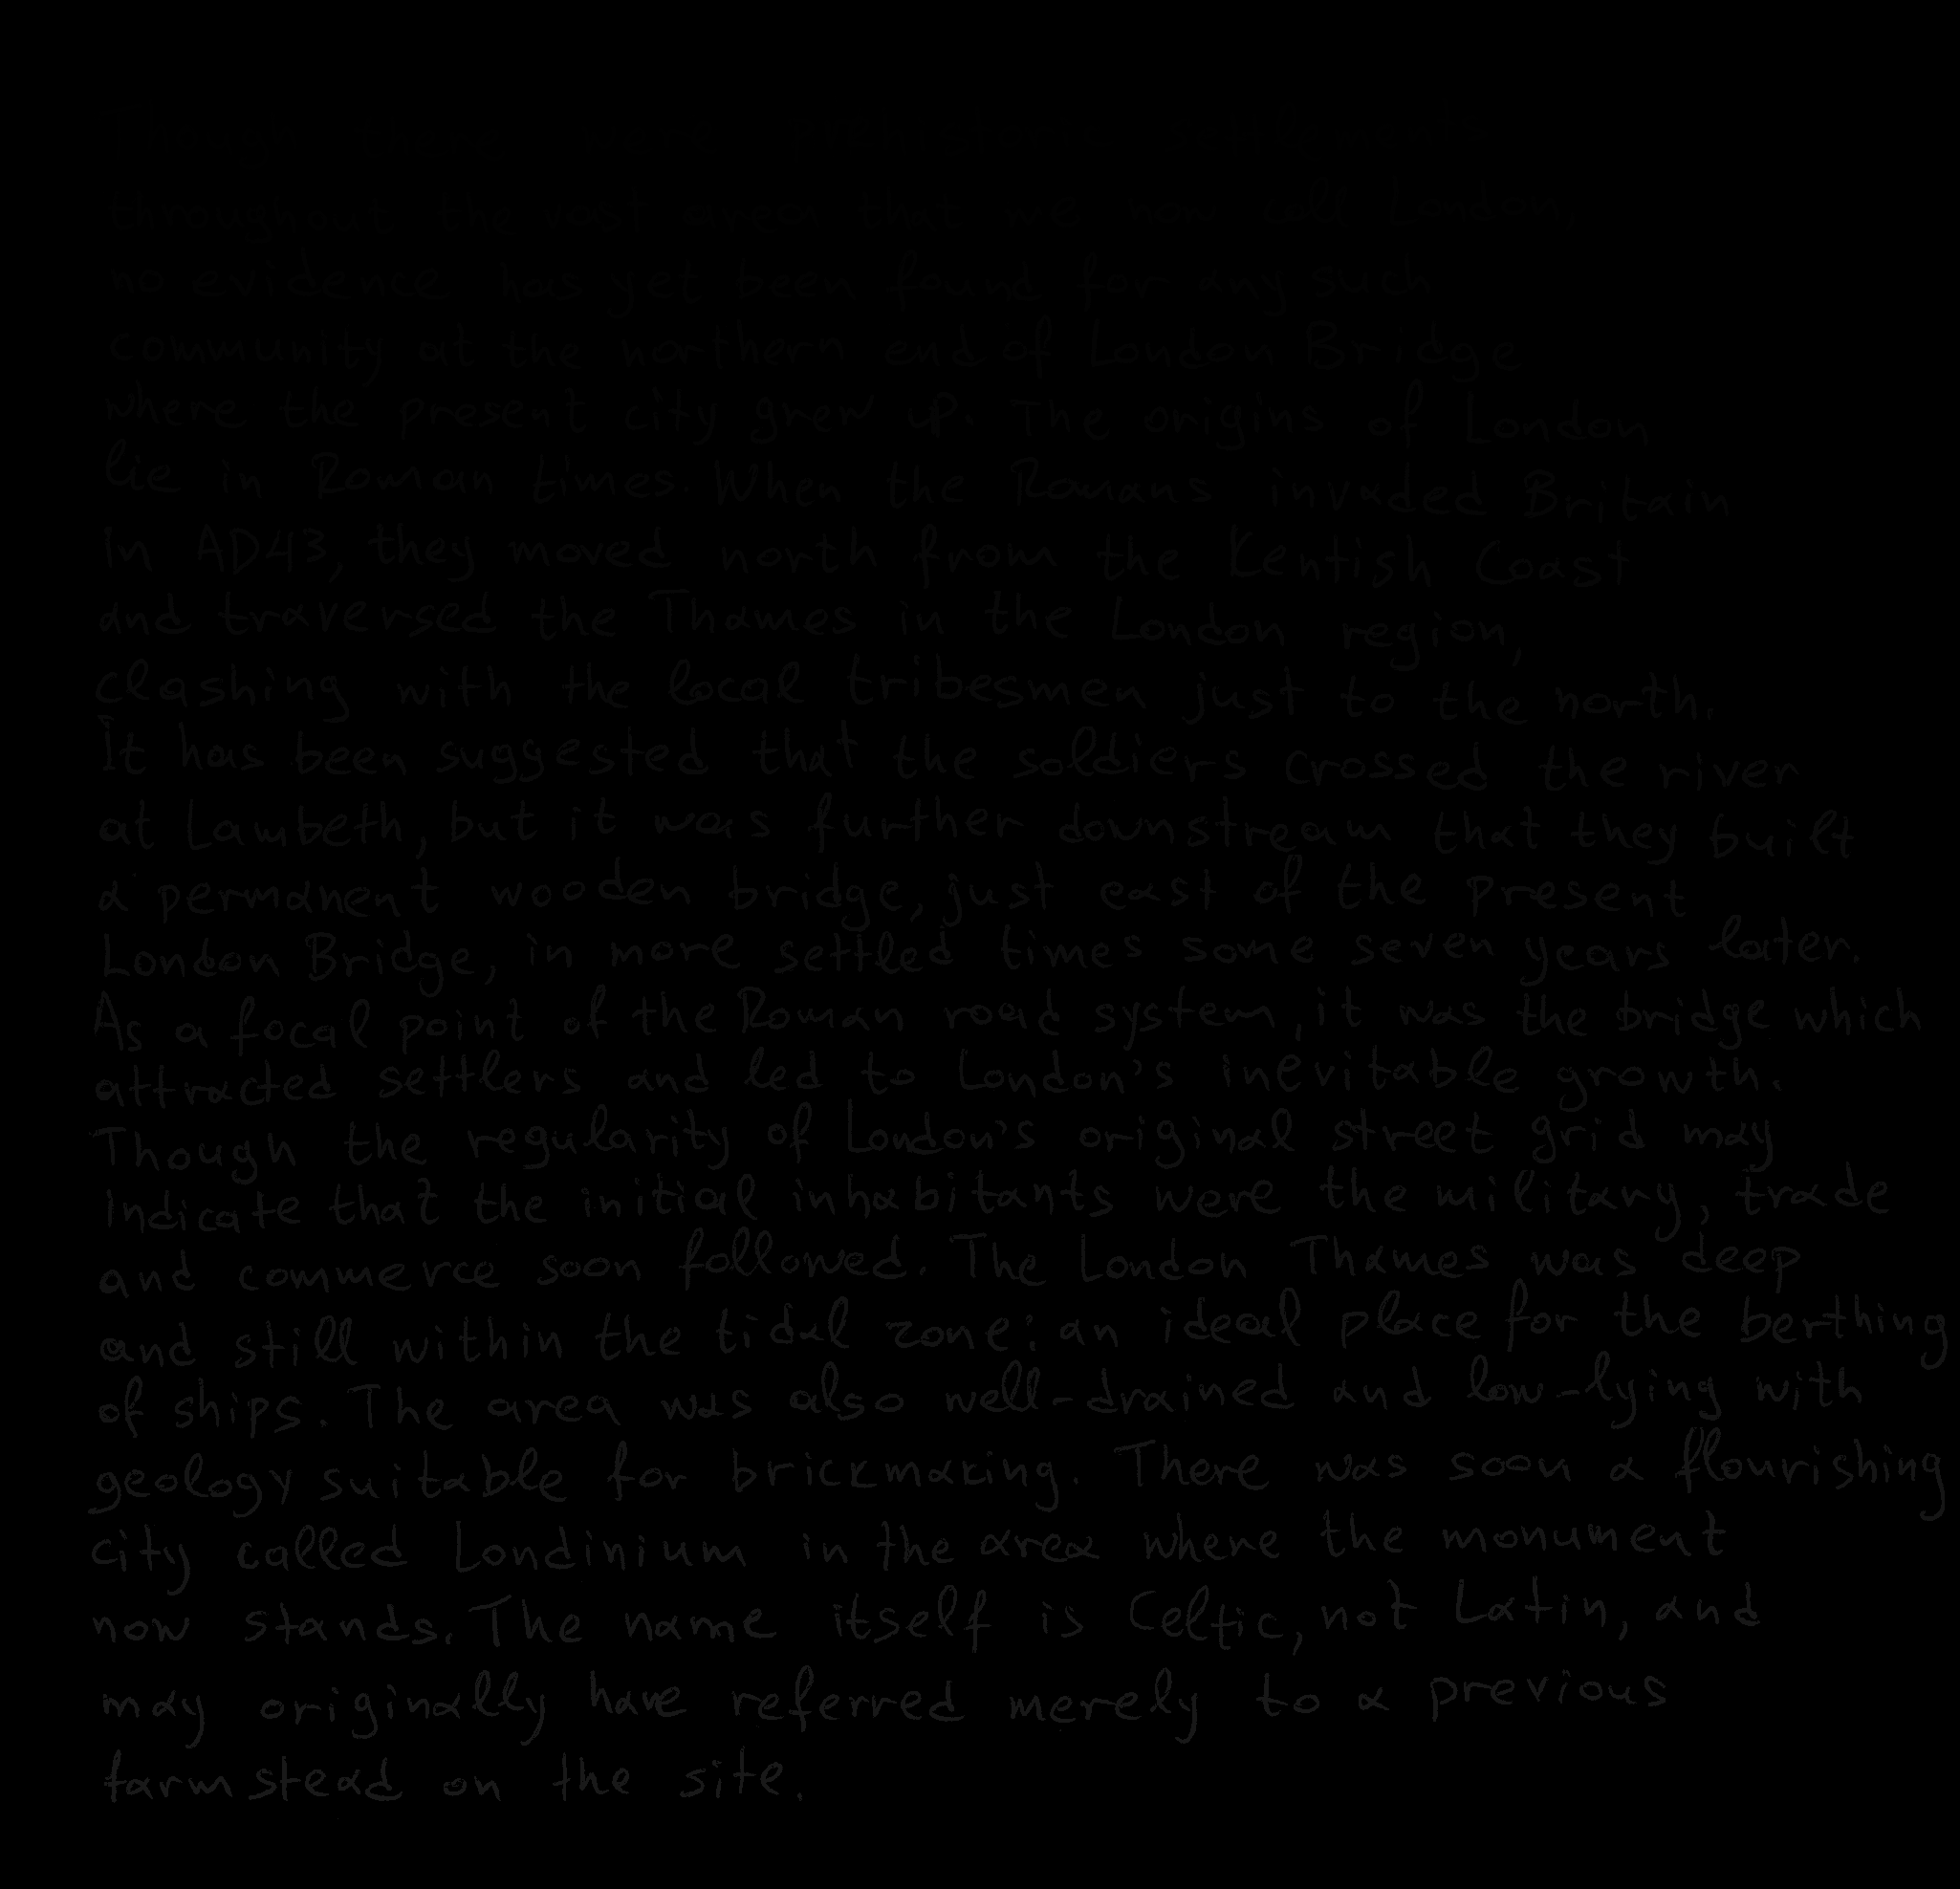 throughout the vast area that we now call London,
no evidence has yet been found for any such
community at the northern end of London Bridge
where the present city grew up. The origins of London
lie in Roman times. When the Romans invaded Britain
in AD43, they moved north from the Kentish Coast
and traversed the Thames in the London region,
clashing with the local tribesmen just to the north.
It has been suggested that the soldiers crossed the river
at Lambeth, but it was further downstream that they built
a permanent wooden bridge, just east of the present
London Bridge, in more settled times some seven years later.
As a focal point of the Roman road system, it was the bridge which
attracted settlers and led to London's inevitable growth.
Though the regularity of London's original street grid may
indicate that the initial inhabitants were the military, trade
and commerce soon followed. The London Thames was deep
and still within the tidal zone: an ideal place for the berthing
of ships. The area was also well-drained and low-lying with
geology suitable for brickmaking. There was soon a flourishing
city called Londinium in the area where the monument
now stands. The name itself is Celtic, not Latin, and
may originally have referred merely to a previous
farmstead on the site.